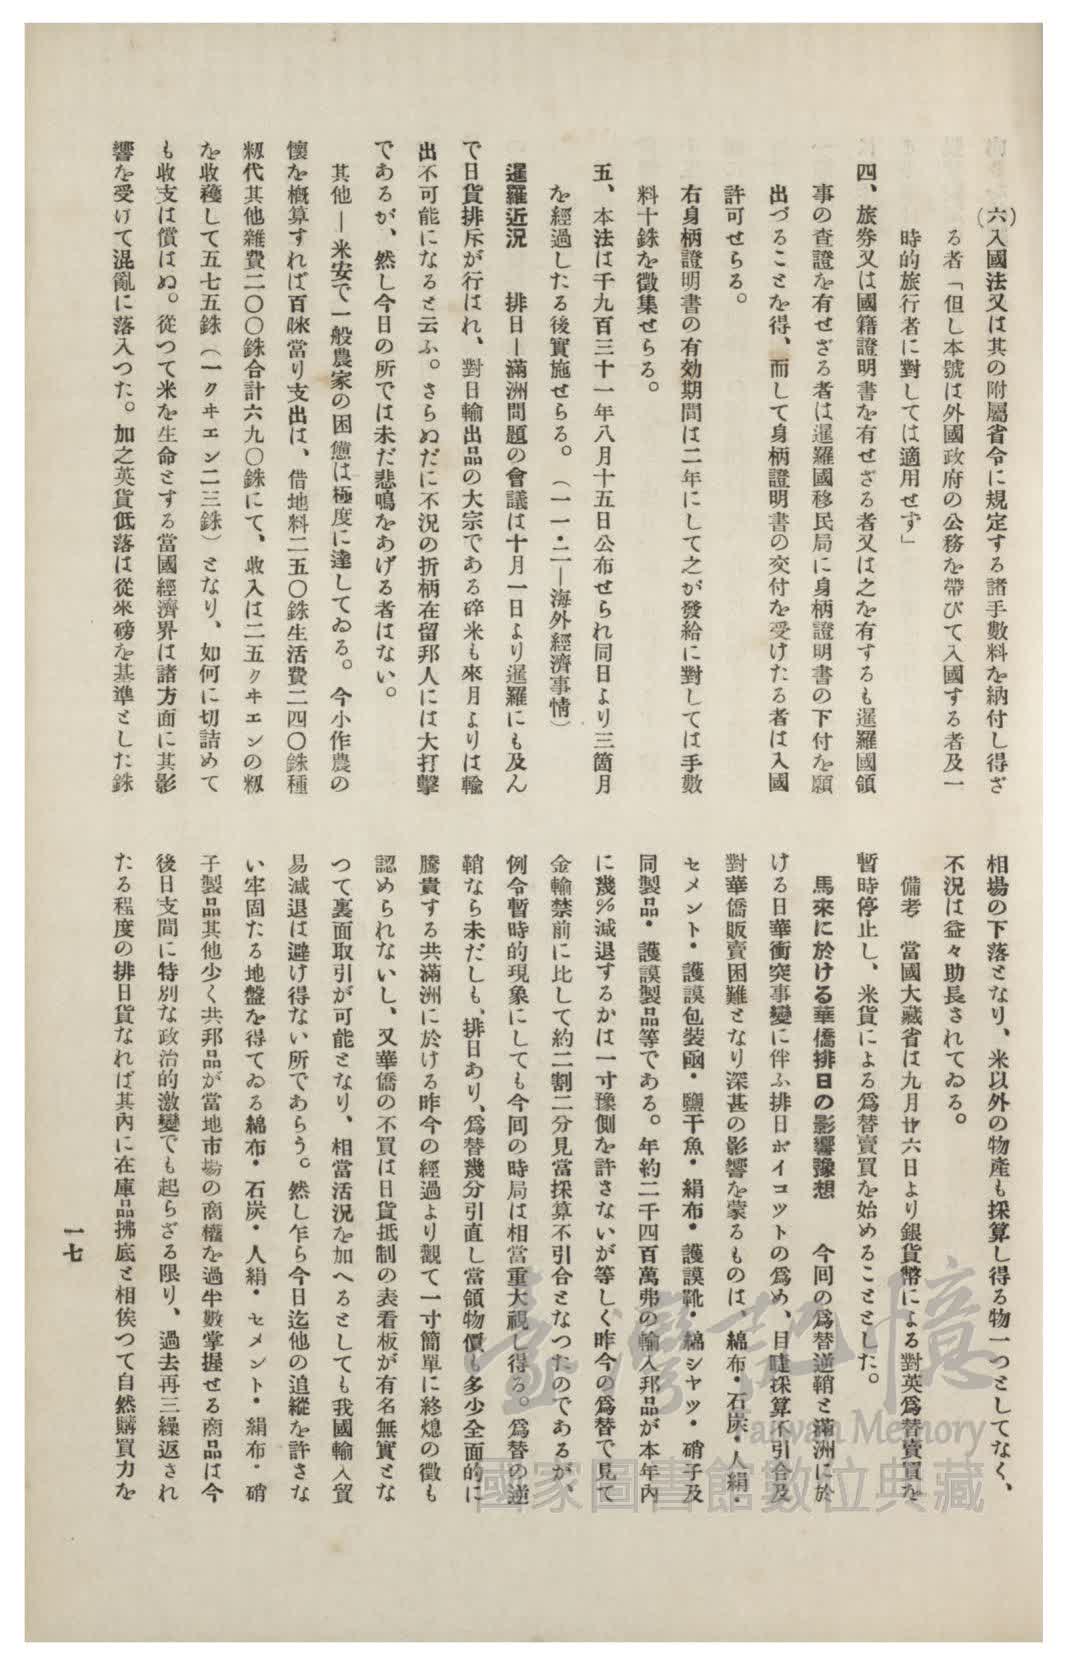 (六)入國法又は其の附屬省令に規定する諸手數料を納付し得ざ
る者「但し本號は外國政府の公務を帶びて入國する者及一
時的旅行者に對しては適用せず」
四、旅券又は國籍證明書を有せざる者又は之を有するも暹羅國領
事の査證を有せざる者は暹羅國移民局に身柄證明書の下付を願
出づることを得、而して身柄證明書の交付を受けたる者は入國
許可せらる。
右身柄證明書の有効期間は二年にして之が發給に對しては手數
料十銖を徵集せらる。
五、本法は千九百三十一年八月十五日公布せられ同日より三箇月
を經過したる後實施せらる。（一一・二—海外經濟事情）
暹羅近況　排日—滿洲問題の會議は十月一日より暹羅にも及ん
で日貨排斥が行はれ、對日輸出品の大宗である碎米も來月よりは輸
出不可能になると云ふ。さらぬだに不況の折柄在留邦人には大打擊
であるが、然し今日の所では未だ悲鳴をあげる者はない。
其他—米安で一般農家の困憊は極度に達してゐる。今小作農の
懷を概算すれば百睞當り支出は、借地料二五〇銖生活費二四〇銖種
籾代其他雜費二〇〇銖合計六九〇銖にて、收入は二五クヰエンの籾
を收穫して五七五銖（一クヰエン二三銖）となり、如何に切詰めて
も收支は償はぬ。從つて米を生命とする當國經濟界は諸方面に其影
響を受けて混亂に落入つた。加之英貨低落は從來磅を基準とした銖
相場の下落となり、米以外の物產も採算し得る物一つとしてなく、
不況は益々助長されてゐる。
備考　當國大藏省は九月廿六日より銀貨幣による對英爲替賣買を
暫時停止し、米貨による爲替賣買を始めることとした。
馬來に於ける華僑排日の影響豫想　今回の爲替逆鞘と滿洲に於
ける日華衝突事變に伴ふ排日ボイコツトの爲め、目睫採算不引合及
對華僑販賣困難となり深甚の影響を蒙るものは、綿布・石炭・人絹・
セメント・護謨包裝凾・鹽干魚・絹布・護謨靴・綿シヤツ・硝子及
同製品・護謨製品等である。年約二千四百萬弗の輸入邦品が本年內
に幾％減退するかは一寸豫側を許さないが等しく昨今の爲替で見て
金輸禁前に比して約二割二分見當採算不引合となつたのであるが、
例令暫時的現象にしても今回の時局は相當重大視し得る。爲替の逆
鞘なら未だしも、排日あり、爲替幾分引直し當領物價も多少全面的に
騰貴する共滿洲に於ける昨今の經過より觀て一寸簡單に終熄の徵も
認められないし、又華僑の不買は日貨抵制の表看板が有名無實とな
つて裏面取引が可能となり、相當活況を加へるとしても我國輸入貿
易減退は避け得ない所であらう。然し乍ら今日迄他の追縱を許さな
い牢固たる地盤を得てゐる綿布・石炭・人絹・セメント・絹布・硝
子製品其他少く共邦品が當地市場の商權を過半數掌握せる商品は今
後日支間に特別な政治的激變でも起らざる限り、過去再三繰返され
たる程度の排日貨なれば其內に在庫品拂底と相俟つて自然購買力を
一七
臺灣記憶
Taiwan Memory
國家圖書館數位典藏